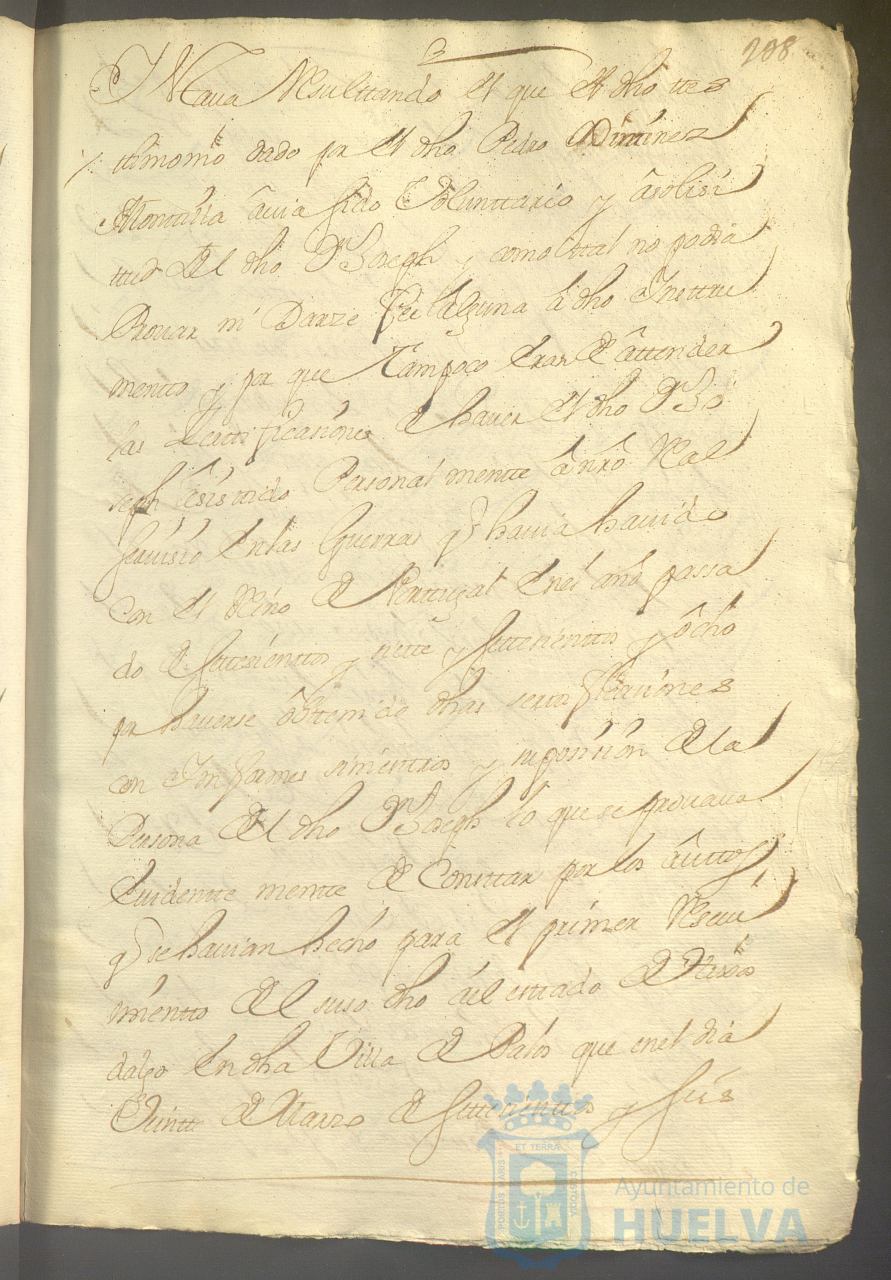 208
Y Maua Resulttando el que el dho ttes
ttimonio dado pr el dho Pedro Ximinez
Montilla auia sido Voluntario y a solisi
ttud del dho Dn Joseph y como ttal no podia
Prouar ni Darze fee alguna a dho Ynsttru
mentto y por que Tampoco eran de attender
las Certtificasiones de hauer el dho Dn Jo
seph asisttido Personal mentte a nro Real
seruisio en las Guerras q hauia hauido
con el Reino de Porttugal en el año passa
do de settesienttos y siette y settesienttos y ocho
pr hauerse obttenido dhas serttificasiones
con Ynformes siniestros y suposision de la
Persona del dho Dn Joseph lo que se prouaua
Euidentte mentte de Consttar por los auttos
q se hauian hecho para el primer Reseui
mientto del suso dho al estado de Hixos
dalgo en dha Villa de Palos que en el dia
Veinte de Marzo de settesienttos y seis
ET TERRA
PORTUS MARIS
CUSTODIA
Ayuntamiento de
HUELVA